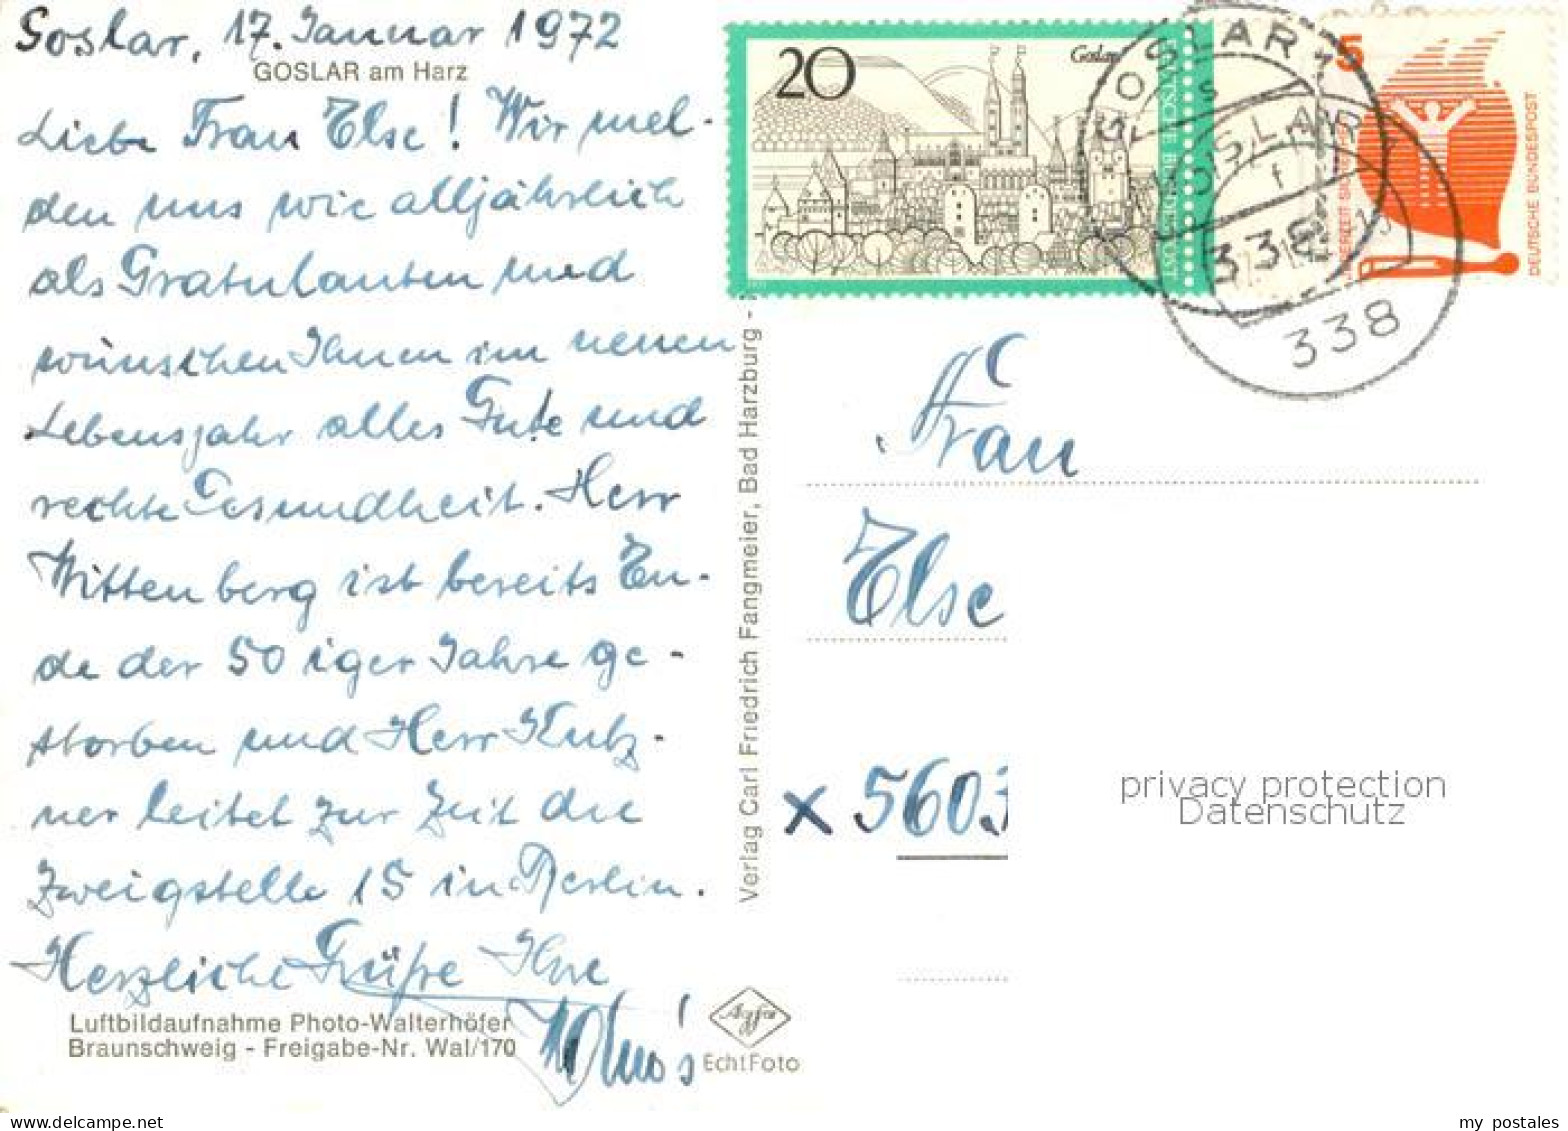 Goslar, 17. Januar 1972
GOSLAR am Harz
Liebe Frau Else! Wir mel-
den uns wie alljährlich
als Gratulanten und
wünschen Ihnen im neuen
Lebensjahr alles Gute und
rechte Gesundheit. Herr
Wittenberg ist bereits En-
de der 50iger Jahre ge-
storben und Herr Kutz-
ner leitet zur Zeit die
Zweigstelle 15 in Berlin.
Herzliche Grüße Ihre
Luftbildaufnahme Photo-Walterhöfer
Braunschweig - Freigabe-Nr. Wal/170
Agfa
EchtFoto
Verlag Carl Friedrich Fangmeier, Bad Harzburg -
20
Goslar
DEUTSCHE BUNDESPOST
5
JEDERZEIT SICHERHEIT
DEUTSCHE BUNDESPOST
GOSLAR 1
s
338
GOSLAR
f
338
Frau
Else
x 5603
privacy protection
Datenschutz
my postales